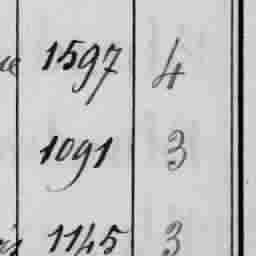 1597 4
1091 3
1145 3